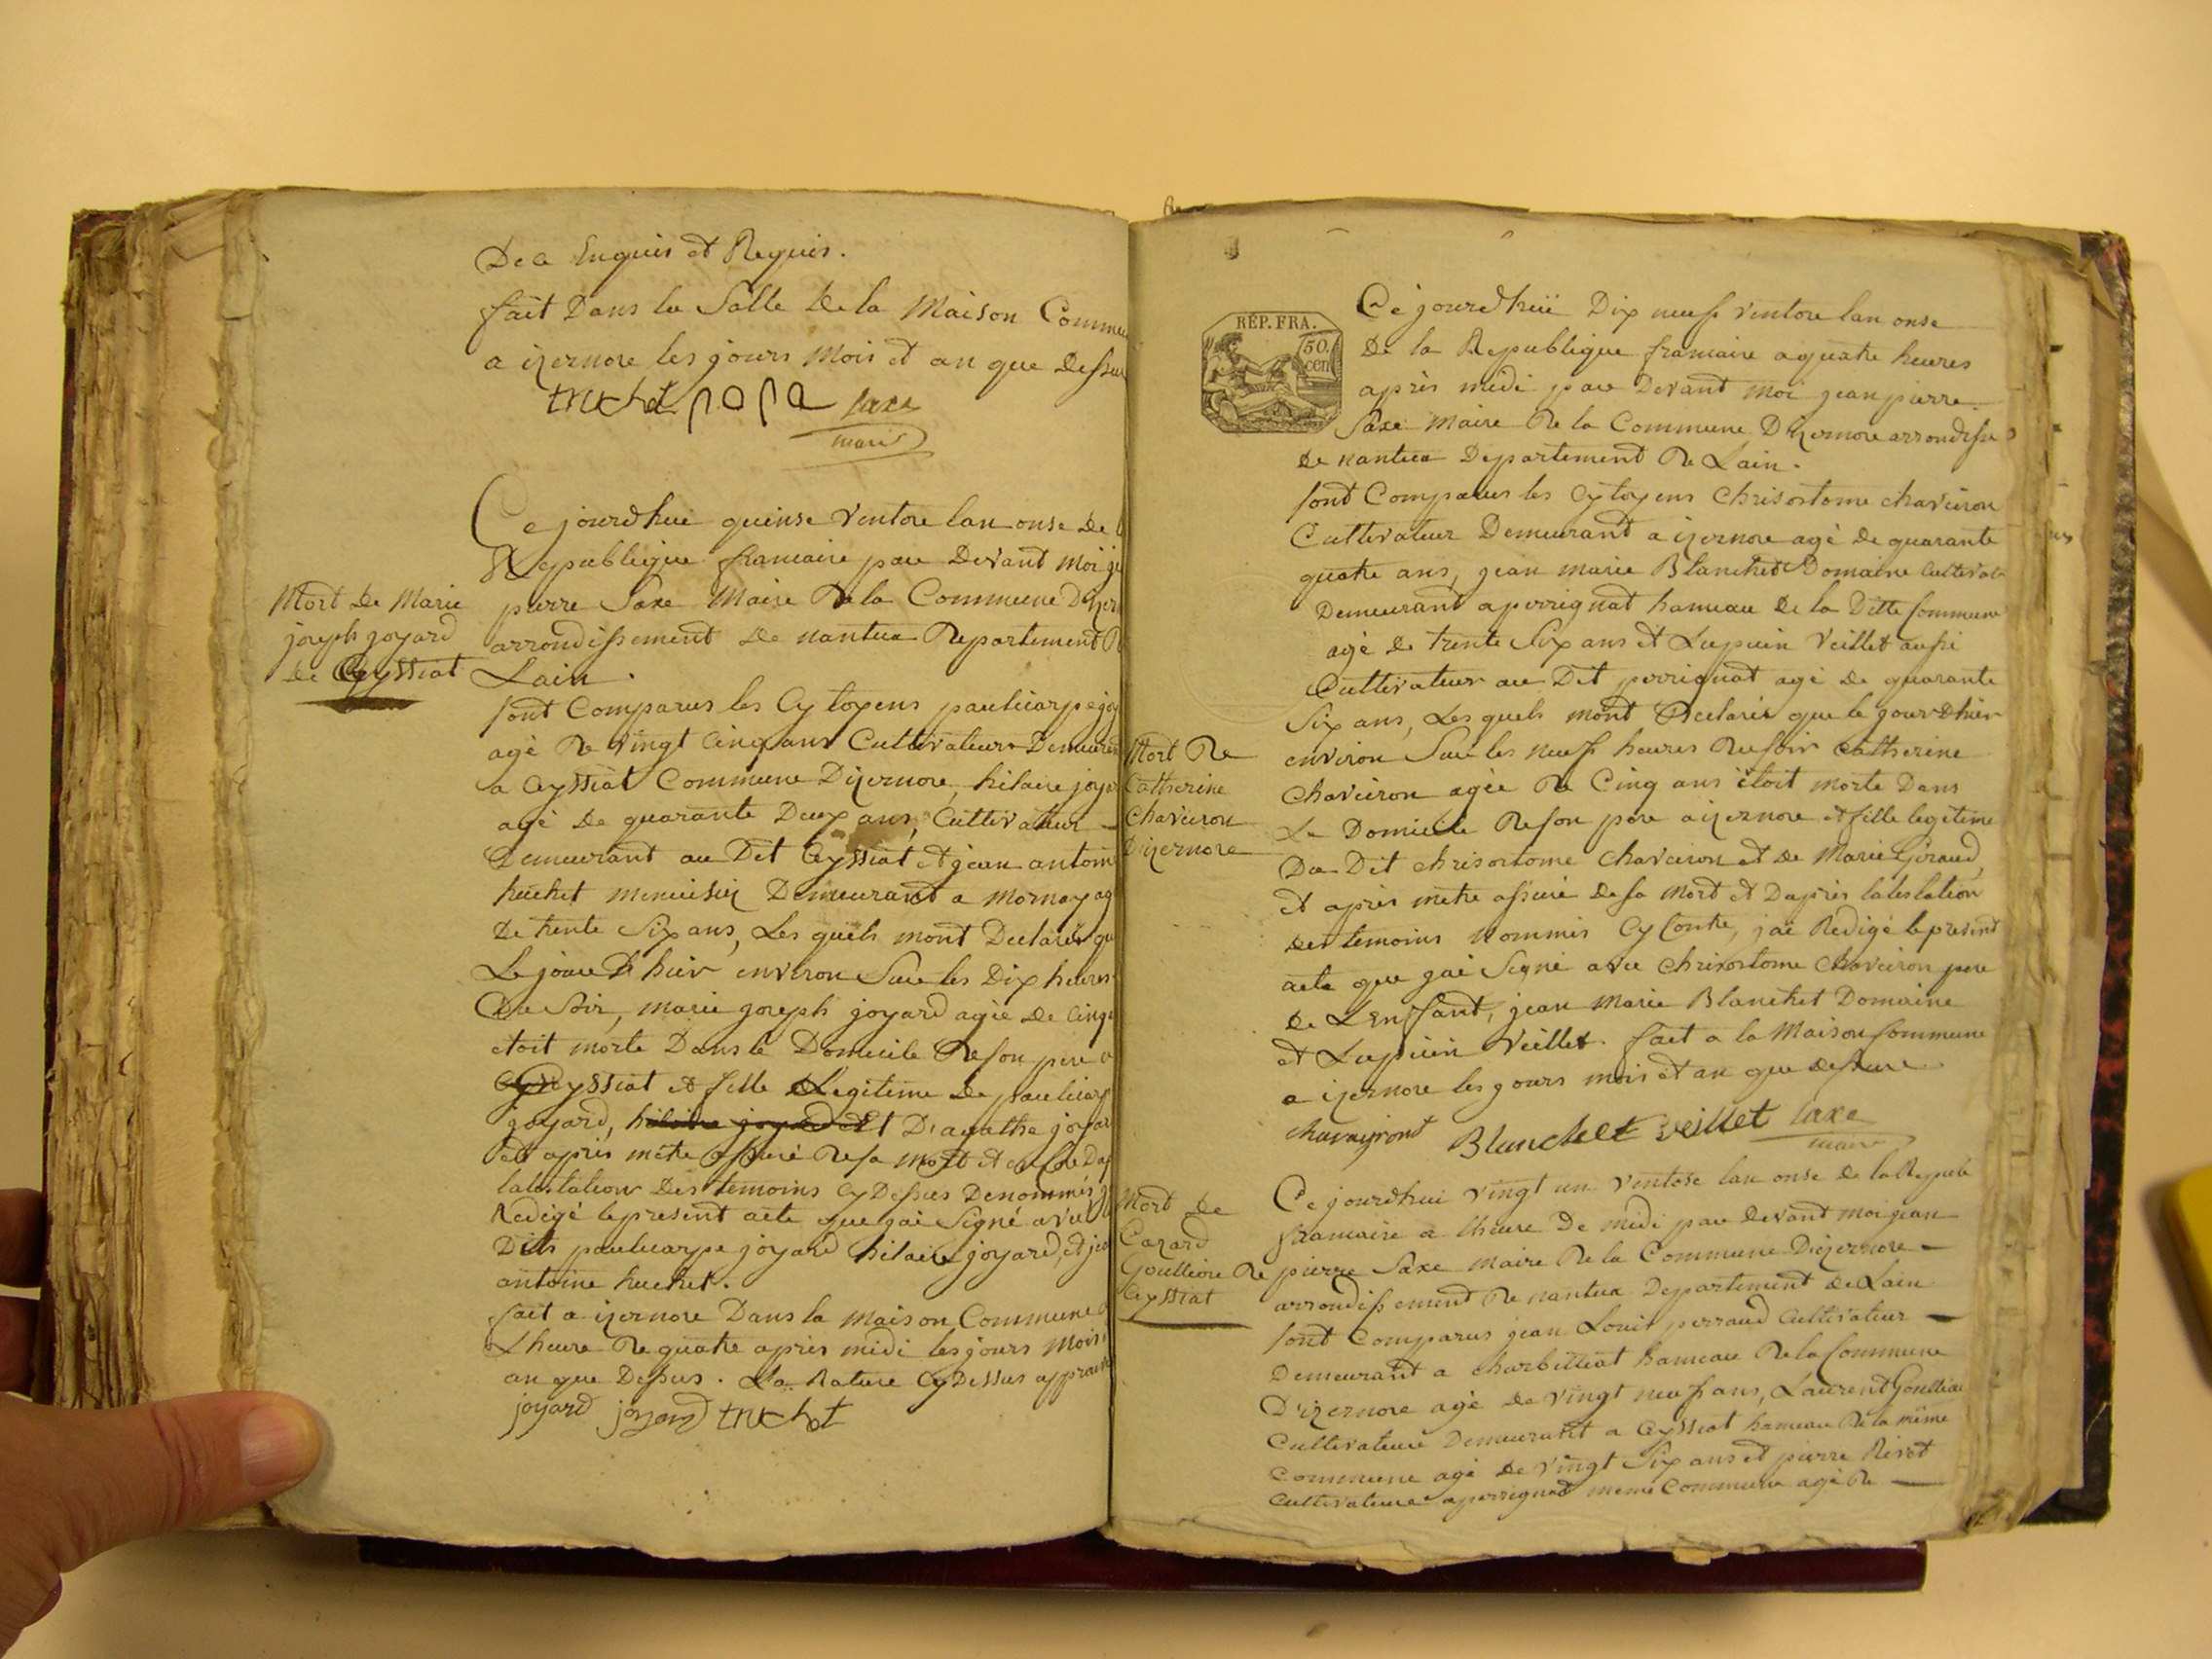 De ce Enquis et Requis.
fait Dans la Salle de la Maison Commu
a izernore les jours mois et an que dessu
truchet papa saxe
maire
Ce jourdhui quinse ventose lan onse de l
Republique francaise par devant moi je
pierre Saxe Maire De la Commune Dizer
arrondissement de nantua Departement D
Lain.
Mort de Marie
joseph joyard
de Ceyssiat
sont Comparus les Cytoyens paulicarpe joy
agé De vingt Cinq ans Cultivateur Demeuran
a Ceyssiat Commune Dizernore, hilaire joyar
agé de quarante Deux ans, Cultivateur
Demeurant au Dit Ceyssiat et jean antoin
huchet menuisier Demeurant a Mornay ag
de trente Six ans, Les quels mont Declarés qu
Le jour d hier environ Sur les Dix heures
Du Soir, marie joseph joyard agée de Cinq
etoit morte Dans le Domicile De son pere a
Ceyssiat et fille Legitime de paulicarp
joyard, hilaire joyard et Et D'agathe joyar
et après metre assuré De sa mort et Dap
latestation Des temoins Cy Dessus Denommés j
Redigé le present acte que jai Signé avec l
Dits paulicarpe joyard hilaire joyard, et jea
antoine huchet.
fait a izernore Dans la maison Commune a
Lheure De quatre après midi les jours Mois
an que Dessus. La Rature Cy Dessus approuv
joyard joyard truchet
REP. FRA.
50.
cen
Ce jourdhui Dix neuf ventose lan onse
De la Republique francaise a quatre heures
après midi par Devant moi jean pierre
Saxe Maire De la Commune Dizernore arrondisse
de nantua Departement De Lain.
sont Comparus les Cytoyens Chrisostome chaveiron
Cultivateur Demeurant a izernore agé de quarante
quatre ans, jean marie Blanchet Domaine Cultivat
Demeurant a perrignat hameau de la Ditte Commune
agé de trente Six ans et Lupicin Veillet aussi
Cultivateur au Dit perrignat agé de quarante
Six ans, Les quels mont Declarés que le jour dhier
environ Sur les neuf heures Du soir Catherine
Chaveiron agée De Cinq ans étoit morte Dans
Le Domicile De son pere a izernore et fille legitime
Du Dit chrisostome chaveiron et de Marie Giraud,
et après metre assuré de sa mort et Daprès latestation
des temoins Nommés Cy Contre, jai Redigé le present
acte que jai Signé avec chrisostome chaveiron pere
de Lenffant, jean marie Blanchet Domaine
et Lupicin Veillet. fait a la Maison Commune
a izernore les jours mois et an que dessus
chavayront Blanchet veillet saxe
maire
Mort De
Catherine
Chaveiron
Dizernore
Ce jourdhui vingt un ventose lan onse de la Repub
francaise a lheure De midi par devant moi jean
pierre Saxe maire De la Commune Dizernore
arrondissement De nantua Departement de Lain
sont Comparus jean Louis perraud Cultivateur
Demeurant a charbilliat hameau De la Commune
D'izernore agé de vingt neuf ans, Laurent Goullion
Cultivateur Demeurant a Ceyssiat hameau De la même
Commune agé de vingt Six ans et pierre Rivet
Cultivateur a perrignat meme Commune agé De
Mort de
Cazard
Goullion De
Ceyssiat